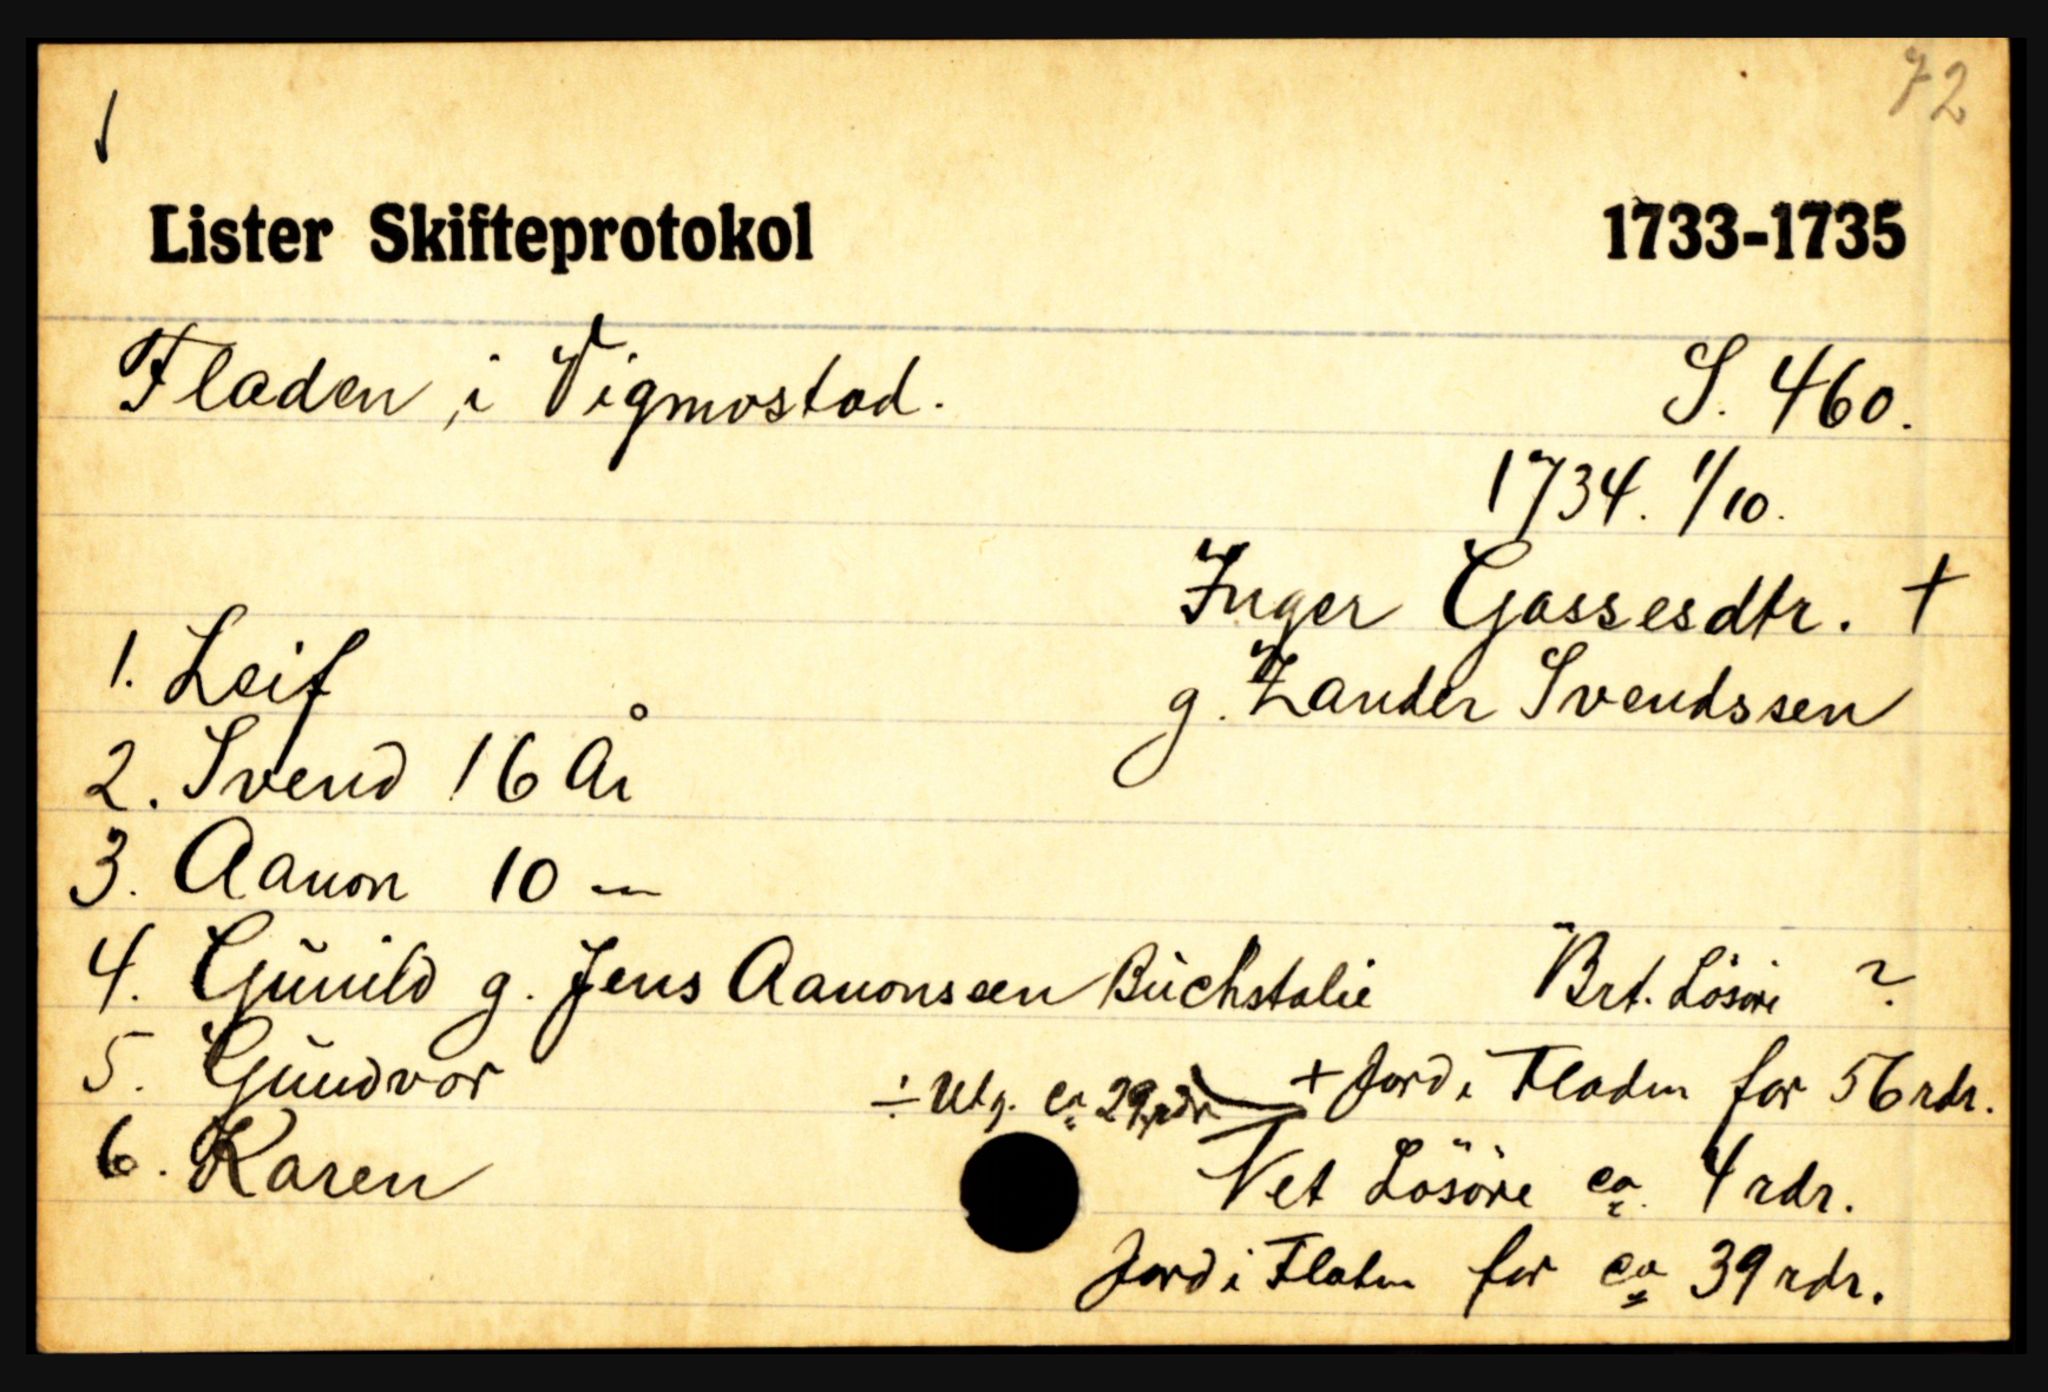 72
Lister Skifteprotokol 1733-1735
Fladen i Vigmostad. S. 460.
1734. 1/10.
Inger Gassesdtr. +
g. Zander Svendssen
1. Leif
2. Svend 16 År
3. Aanon 10 —
4. Gŭnild g. Jens Aanonsen
5. Gŭndvor
6. Karen
Brt. Lösöre ?
+ Jord i Fladen for 56 rdr.
÷ Utg. ca 29 rdr
Net Lösöre ca. 4 rdr.
Jord i Fladen for ca 39 rdr.